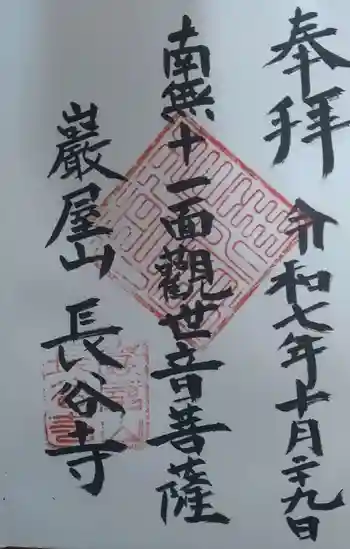 奉拝
令和七年十月二十九日
南無十一面觀世音菩薩
巖屋山 長谷寺